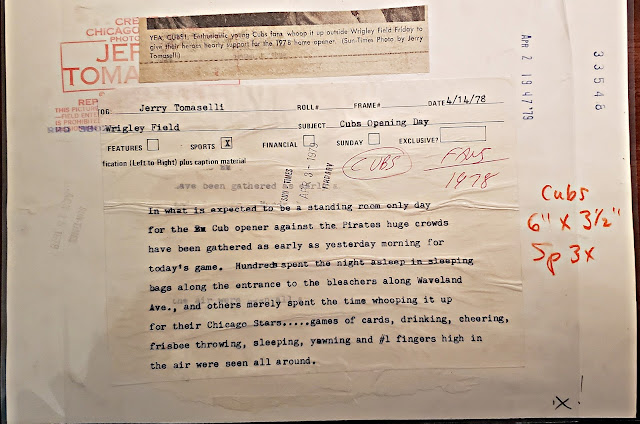 CRE
CHICAGO
PHOTO
JER
TOMA
YEA, CUBS!: Enthusiastic young Cubs fans whoop it up outside Wrigley Field Friday to
give their heroes hearty support for the 1978 home opener. (Sun-Times Photo by Jerry
Tomaselli)
APR 2 1947'79
33548
REP
THIS PICTURE
FIELD ENTE
IS PROHIBITE
OG: Jerry Tomaselli ROLL# FRAME# DATE 4/14/78
Wrigley Field SUBJECT Cubs Opening Day
FEATURES SPORTS X FINANCIAL SUNDAY EXCLUSIVE?
fication (Left to Right) plus caption material
CUBS
FANS
1978
SUN TIMES
APR 3 - 1979
LIBRARY
have been gathered as early as
In what is expected to be a standing room only day
for the Cub opener against the Pirates huge crowds
have been gathered as early as yesterday morning for
today's game. Hundreds spent the night asleep in sleeping
bags along the entrance to the bleachers along Waveland
Ave., and others merely spent the time whooping it up
for their Chicago Stars.....games of cards, drinking, cheering,
frisbee throwing, sleeping, yawning and #1 fingers high in
the air were seen all around.
the air were
Cubs
6" X 3½"
Sp 3x
X